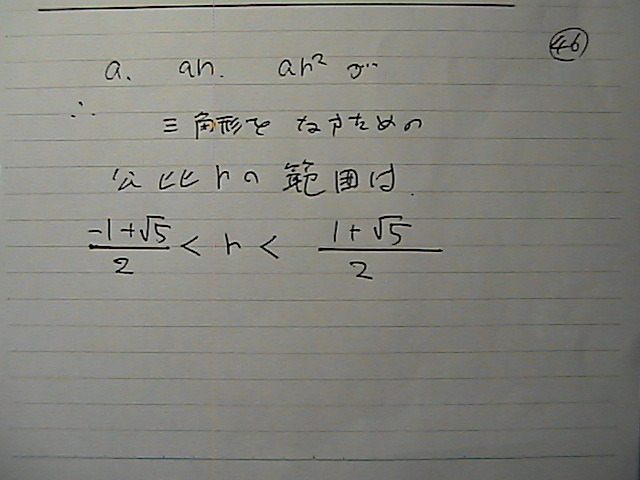 ㊻
a. ar. ar² が
∴
三角形を なすための
公比 r の 範囲は.
(-1+√5)/2 < r < (1+√5)/2